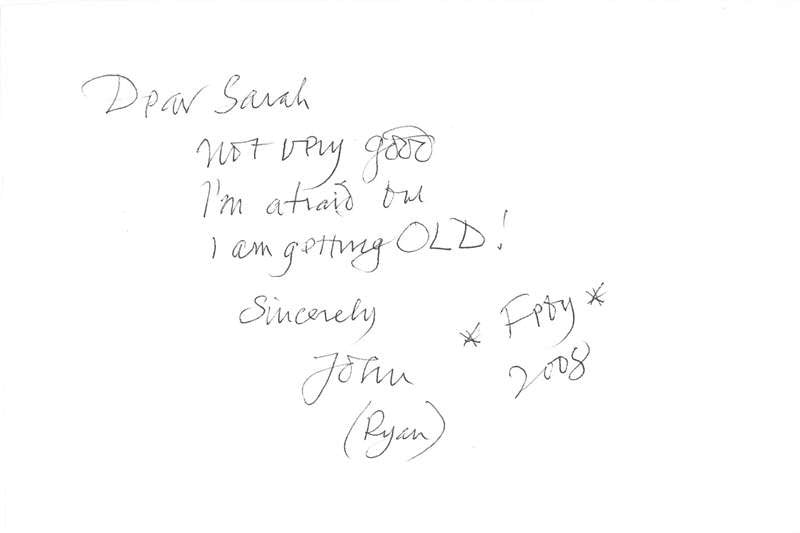 Dear Sarah
not very good
I'm afraid but
I am getting OLD!
Sincerely
John
(Ryan)
* *
2008